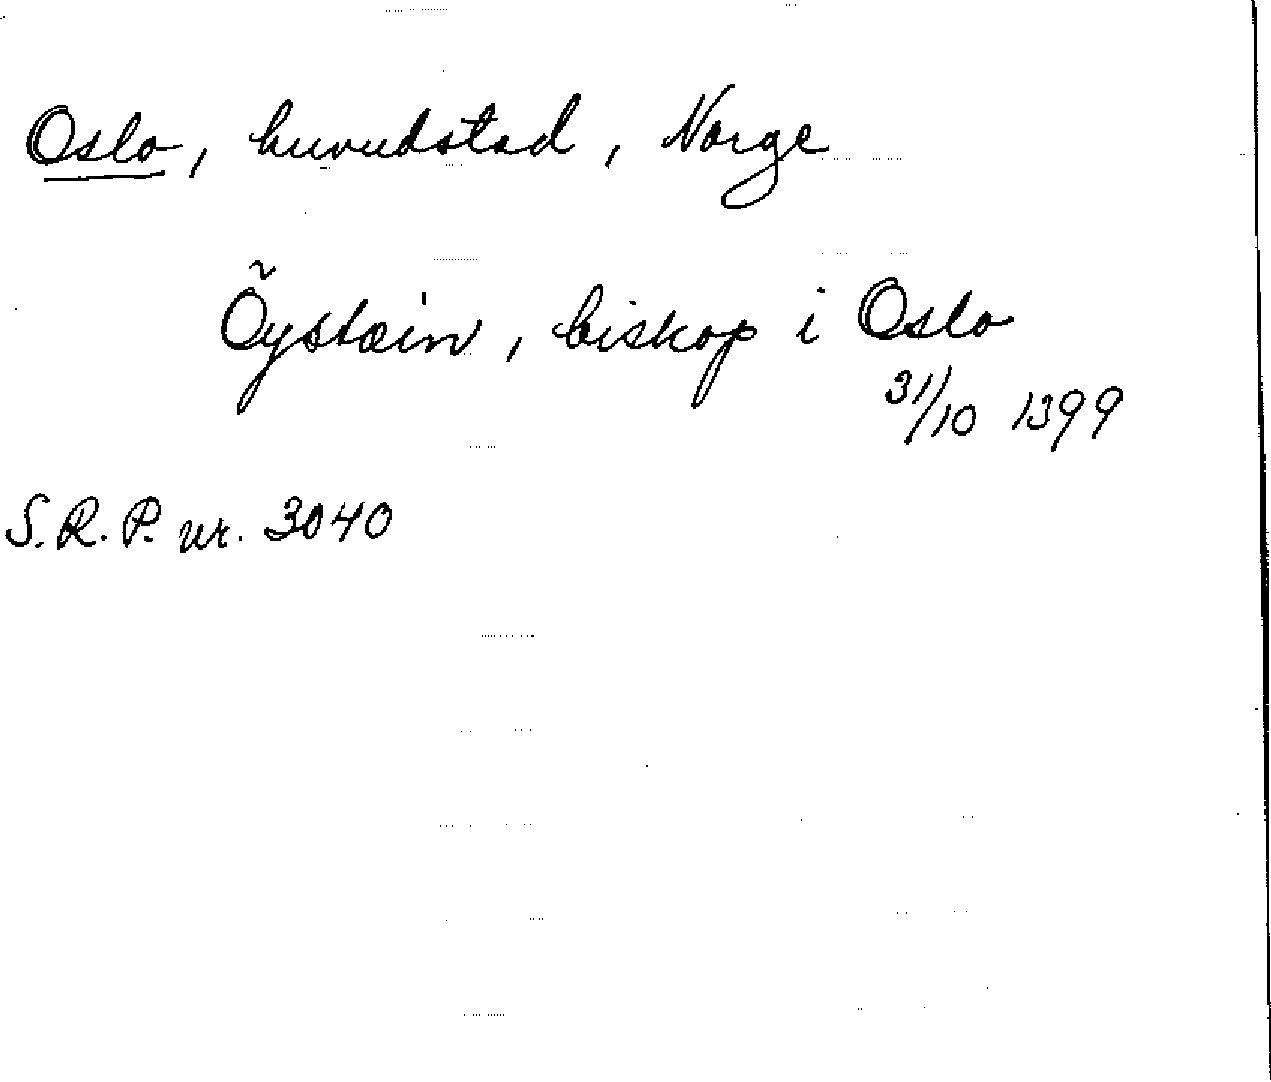 Oslo, huvudstad, Norge
Öystæin, biskop i Oslo
31/10 1399
S.R.P. nr. 3040